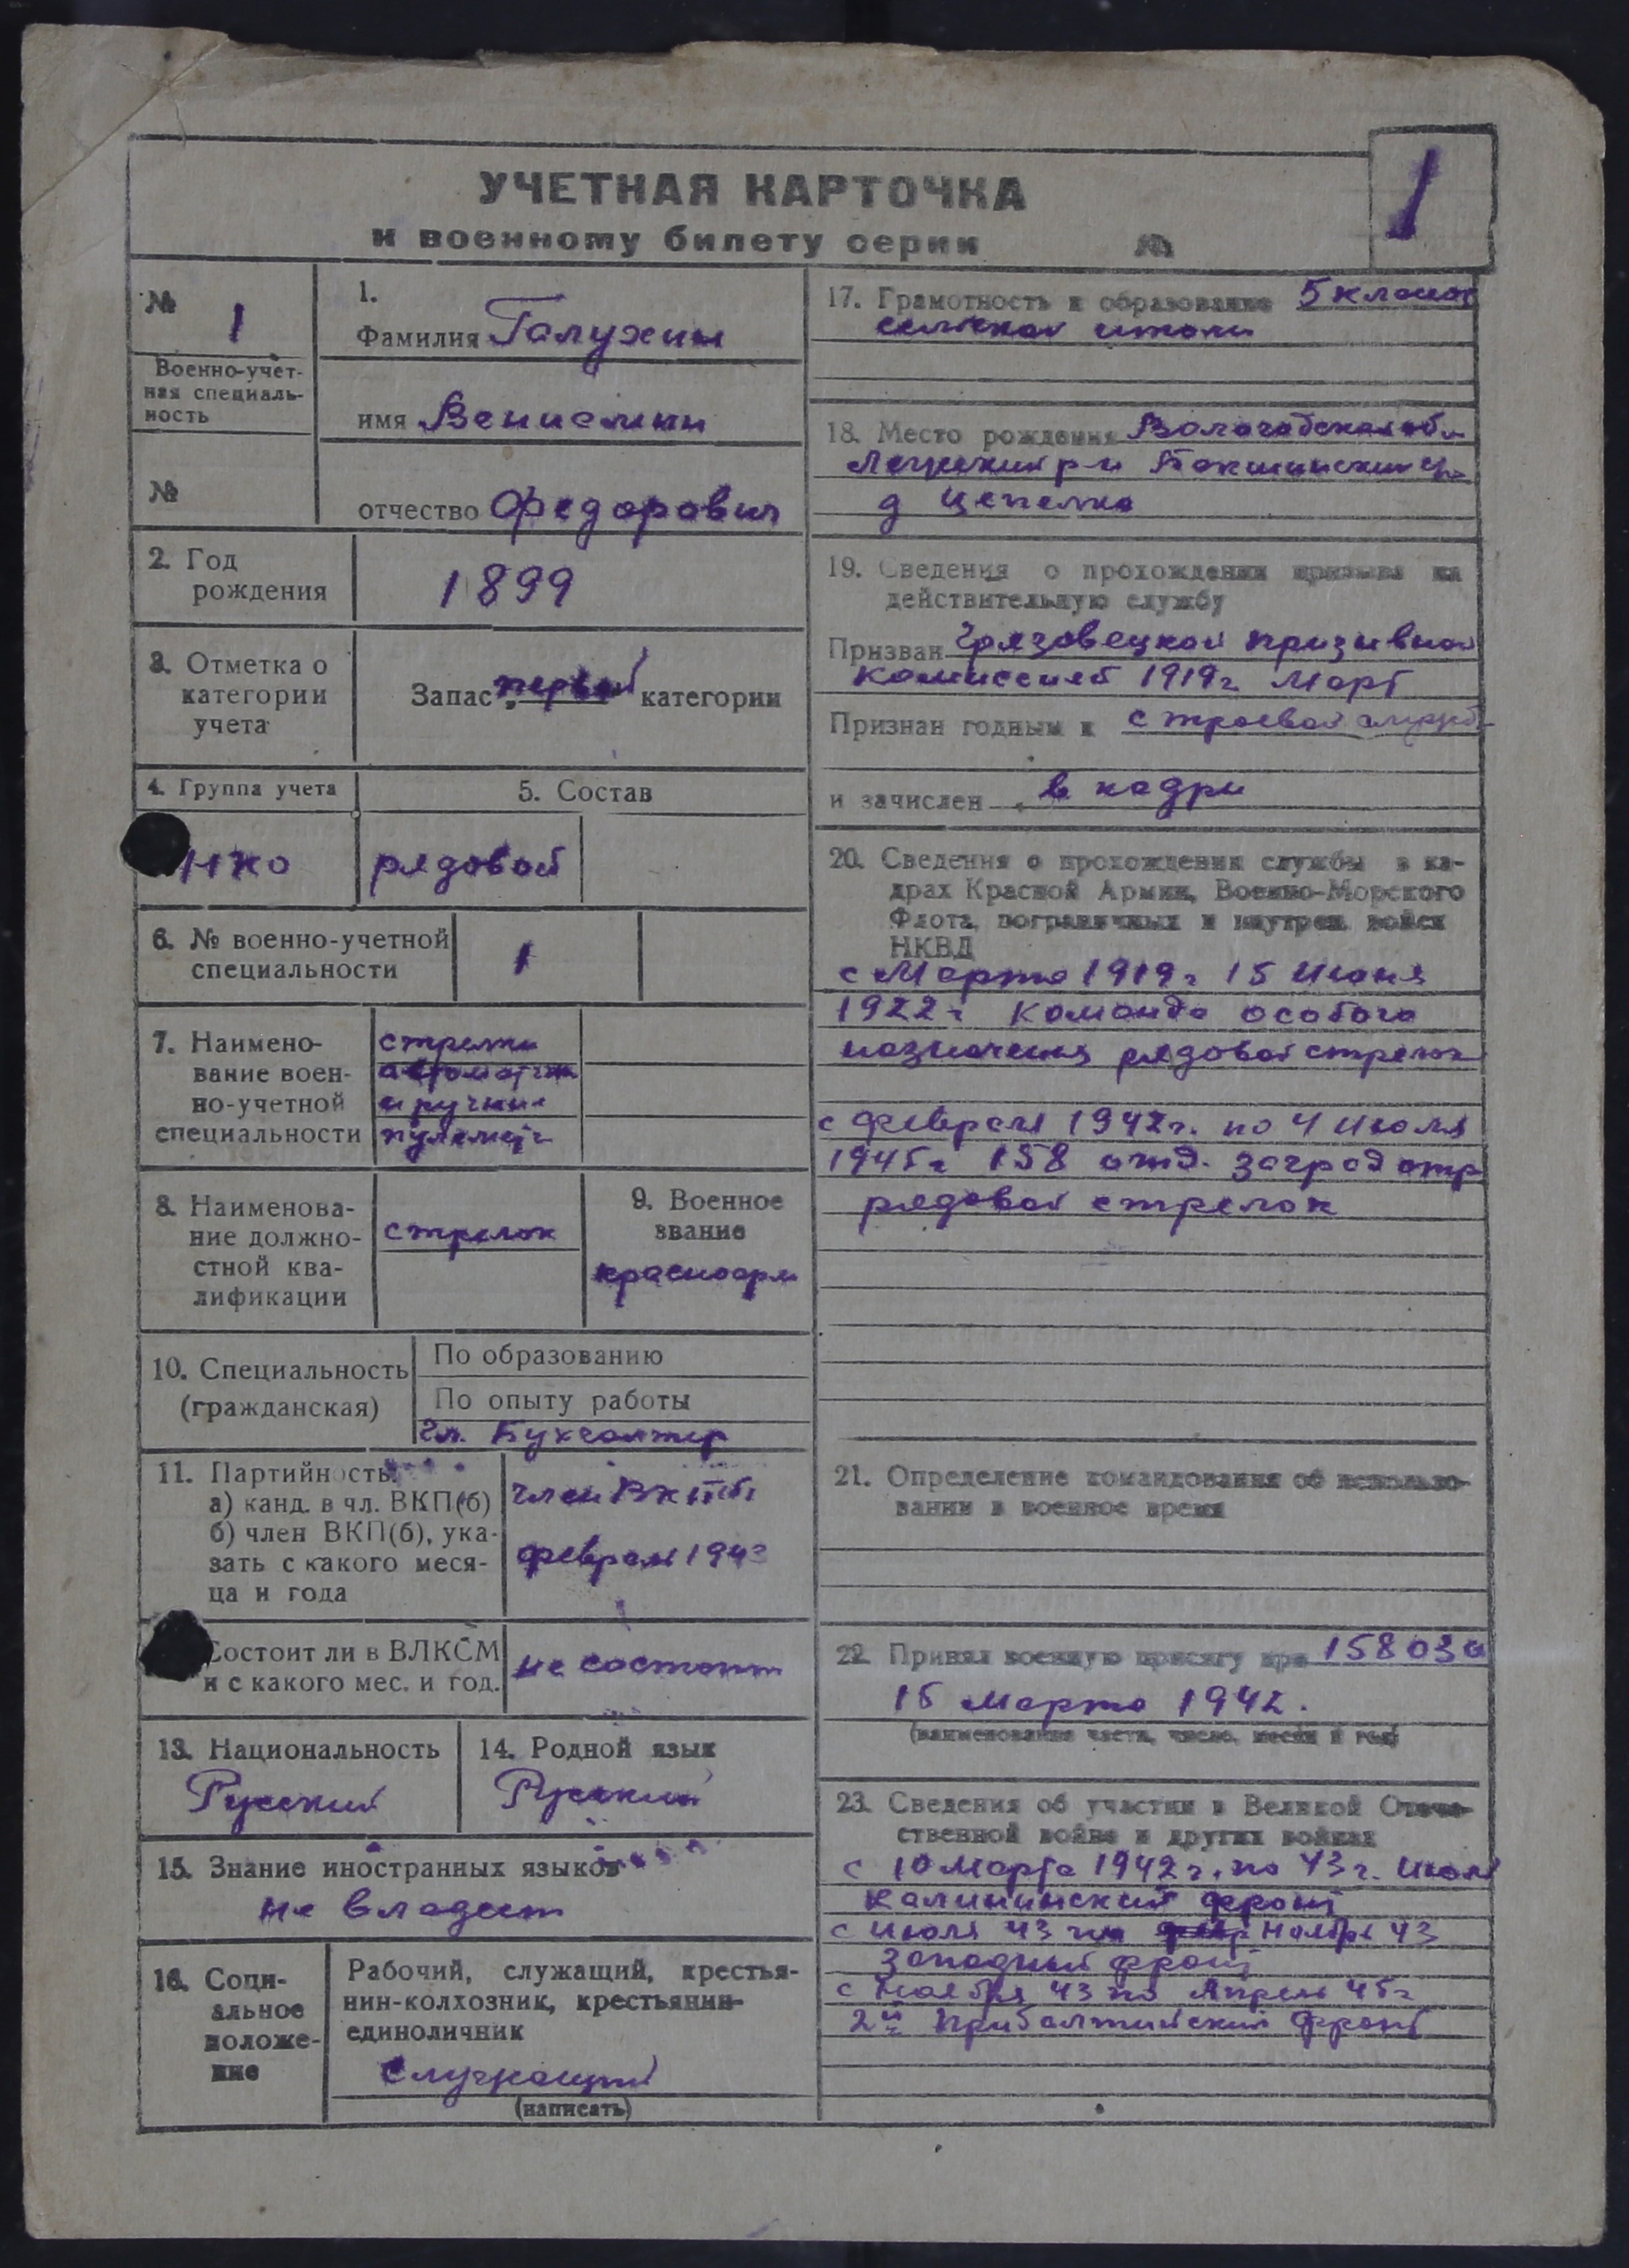 УЧЕТНАЯ КАРТОЧКА
к военному билету серии №
1
№ 1
Военно-учет-
ная специаль-
ность
№
1.
Фамилия Галухин
имя Вениамин
отчество Федорович
2. Год
рождения
1899
3. Отметка о
категории
учета
Запас первой категории
4. Группа учета
НКО
5. Состав
рядовой
6. № военно-учетной
специальности
1
7. Наимено-
вание воен-
но-учетной
специальности
стрелки
автоматчи
и ручные
пулемет
8. Наименова-
ние должно-
стной ква-
лификации
стрелок
9. Военное
звание
красноарм
10. Специальность
(гражданская)
По образованию
По опыту работы
Гл. Бухгалтер
11. Партийность
а) канд. в чл. ВКП(б)
б) член ВКП(б), ука-
зать с какого меся-
ца и года
член ВКПб
февраль 1943
Состоит ли в ВЛКСМ
и с какого мес. и год.
не состоит
13. Национальность
Русский
14. Родной язык
Русский
15. Знание иностранных языков
не владеет
16. Соци-
альное
положе-
ние
Рабочий, служащий, крестья-
нин-колхозник, крестьянин-
единоличник
Служащий
(написать)
17. Грамотность и образование 5 класов
сельской школы
18. Место рождения Вологодская обл
р-н
д Цепелка
19. Сведения о прохождении призыва на
действительную службу
Призван Грязовецкой призывной
комиссией 1919г Март
Признан годным к строевой службе
и зачислен в кадры
20. Сведения о прохождении службы в ка-
драх Красной Армии, Военно-Морского
Флота, пограничных и внутрен. войск
НКВД
с Марта 1919г 15 Июня
1922г команда особого
назначения рядовой стрелок
с февраля 1942г. по 4 Июля
1945г 158 отд. заград отр
рядовой стрелок
21. Определение командования об использо-
вании в военное время
22. Принял военную присягу при 158 ОЗО
15 марта 1942.
(наименование части, число, месяц и год)
23. Сведения об участии в Великой Отече-
ственной войне и других войнах
с 10 Марта 1942г. по 43г. Июль
Калининский фронт
с июля 43 по Ноябрь 43
Западный фронт
с Ноября 43 по Апрель 45г
2й Прибалтийский фронт